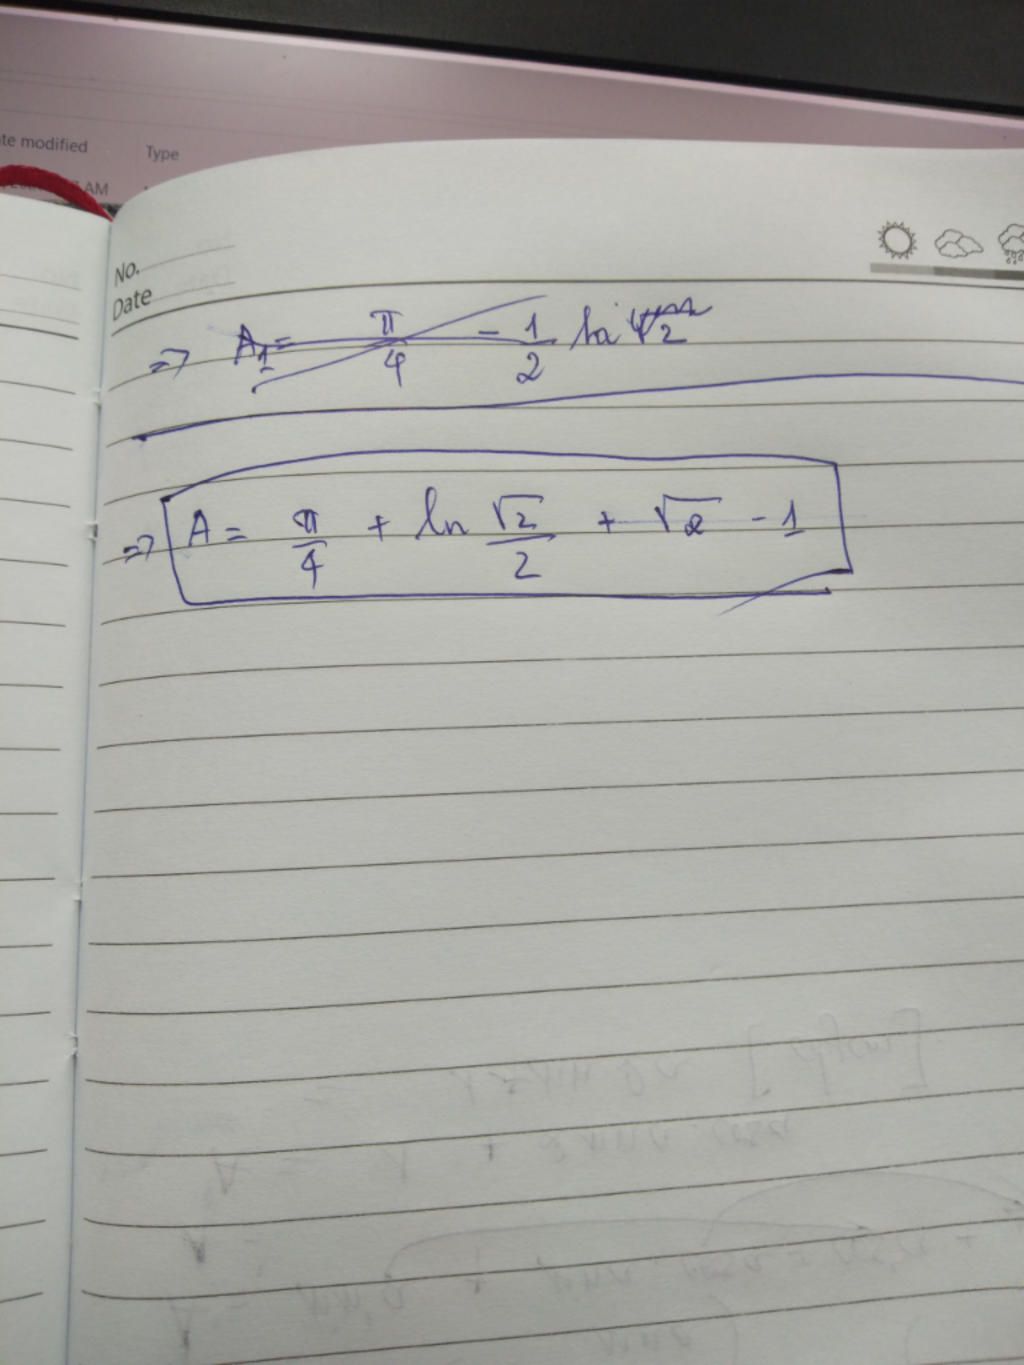 te modified Type
AM
No.
Date
=> A₁ = π/4 - 1/2 ln √2
=> A = π/4 + ln √2/2 + √2 - 1